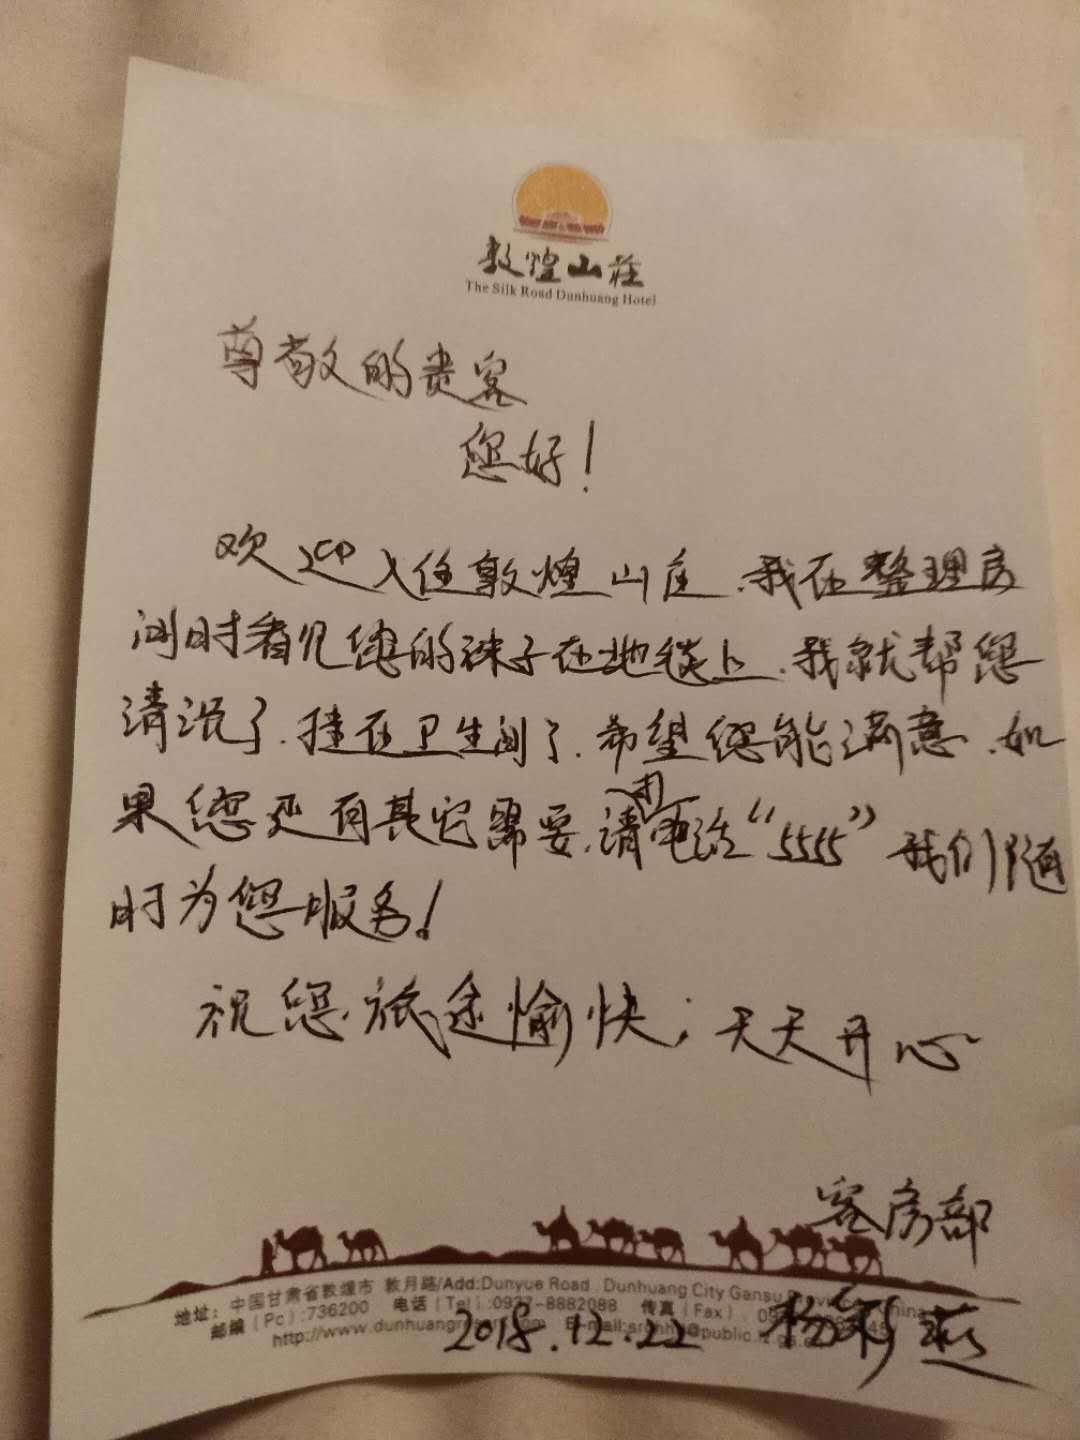 敦煌山莊
The Silk Road Dunhuang Hotel
尊敬的贵客
您好!
欢迎入住敦煌山庄.我在整理房
间时看见您的袜子在地毯上.我就帮您
清洗了.挂在卫生间了.希望您能满意.如
果您还有其它需要.请打电话“5555”我们随
时为您服务!
祝您旅途愉快;天天开心
客房部
地址: 中国甘肃省敦煌市 敦月路/Add:Dunyue Road . Dunhuang City Gansu Province, China
邮编(Pc):736200 电话(Tel):0937-8882088 传真(Fax).
http://www.dunhuangresort.com E-mail:
2018.12.22